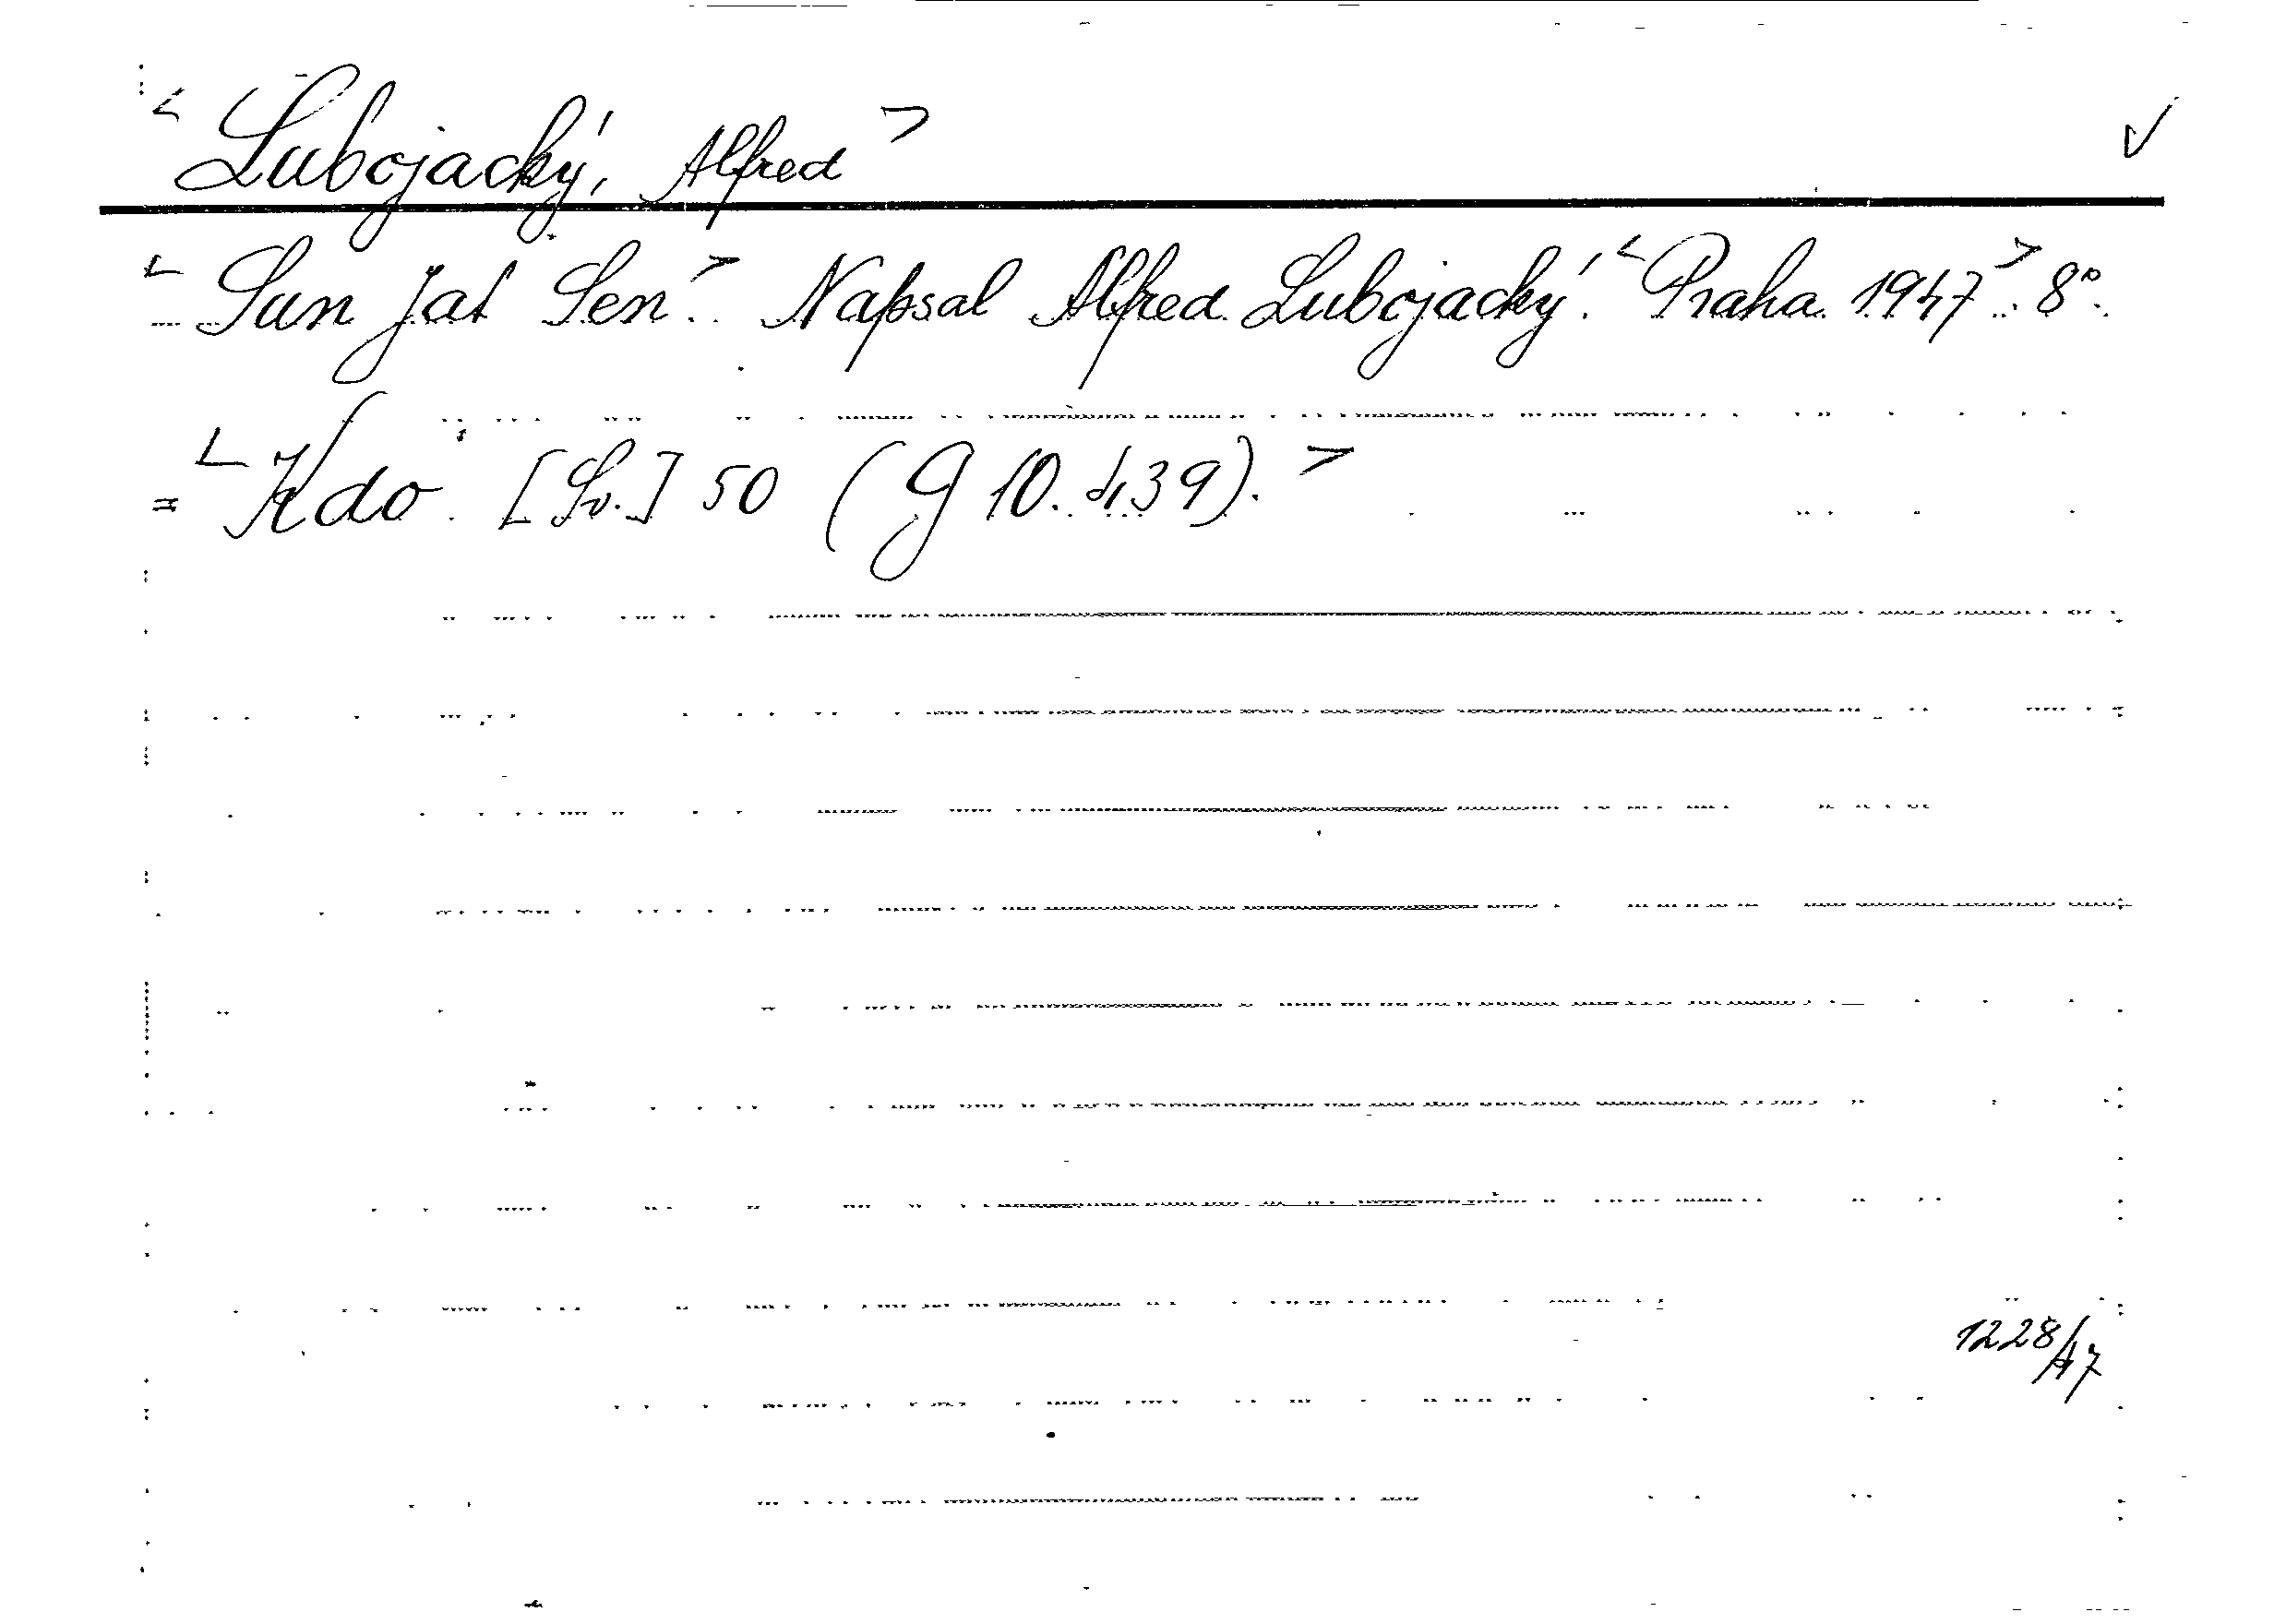 < Lubojacký, Alfred > ✓
< Sun Jat Sen. > Napsal Alfred Lubojacký. < Praha 1947 >. 8°.
= < Kdo. [Sv.] 50 (G 10.439). >
1228/47